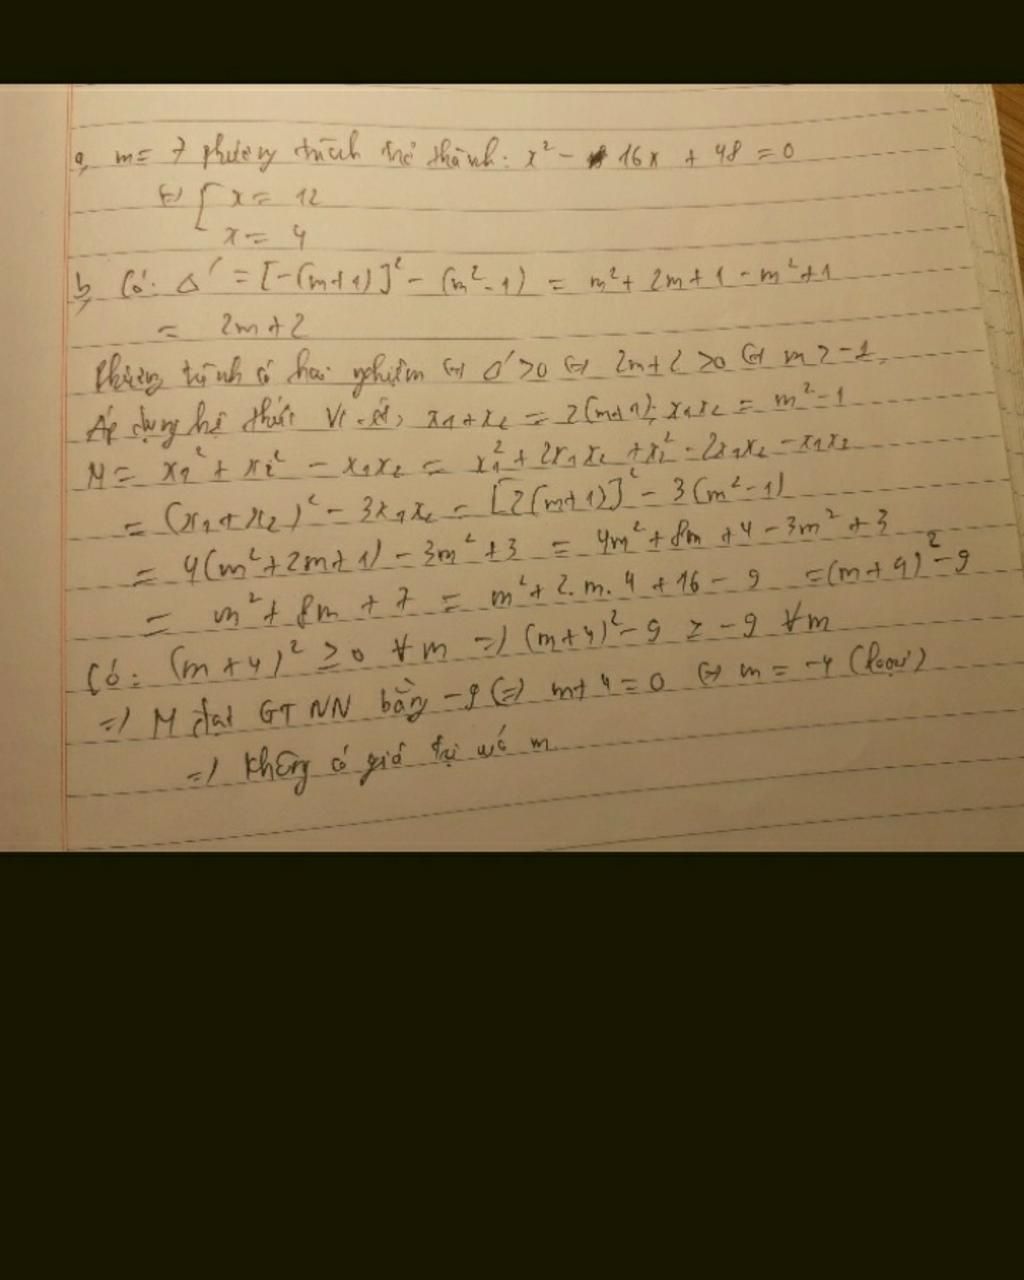 a, m = 7 phương trình trở thành: x² - 16x + 48 = 0
⇔ [ x = 12
x = 4
b, Có: Δ' = [-(m+1)]² - (m²-1) = m² + 2m + 1 - m² + 1
= 2m + 2
Phương trình có hai nghiệm ⇔ Δ' > 0 ⇔ 2m + 2 > 0 ⇔ m > -1.
Áp dụng hệ thức Vi-ét, x₁ + x₂ = 2(m+1); x₁x₂ = m² - 1
M = x₁² + x₂² - x₁x₂ = x₁² + 2x₁x₂ + x₂² - 2x₁x₂ - x₁x₂
= (x₁ + x₂)² - 3x₁x₂ = [2(m+1)]² - 3(m²-1)
= 4(m² + 2m + 1) - 3m² + 3 = 4m² + 8m + 4 - 3m² + 3
= m² + 8m + 7 = m² + 2.m.4 + 16 - 9 = (m+4)² - 9
Có: (m+4)² ≥ 0 ∀m => (m+4)² - 9 ≥ -9 ∀m
=> M đạt GTNN bằng -9 (=) m + 4 = 0 ⇔ m = -4 (loại)
=> Không có giá trị m